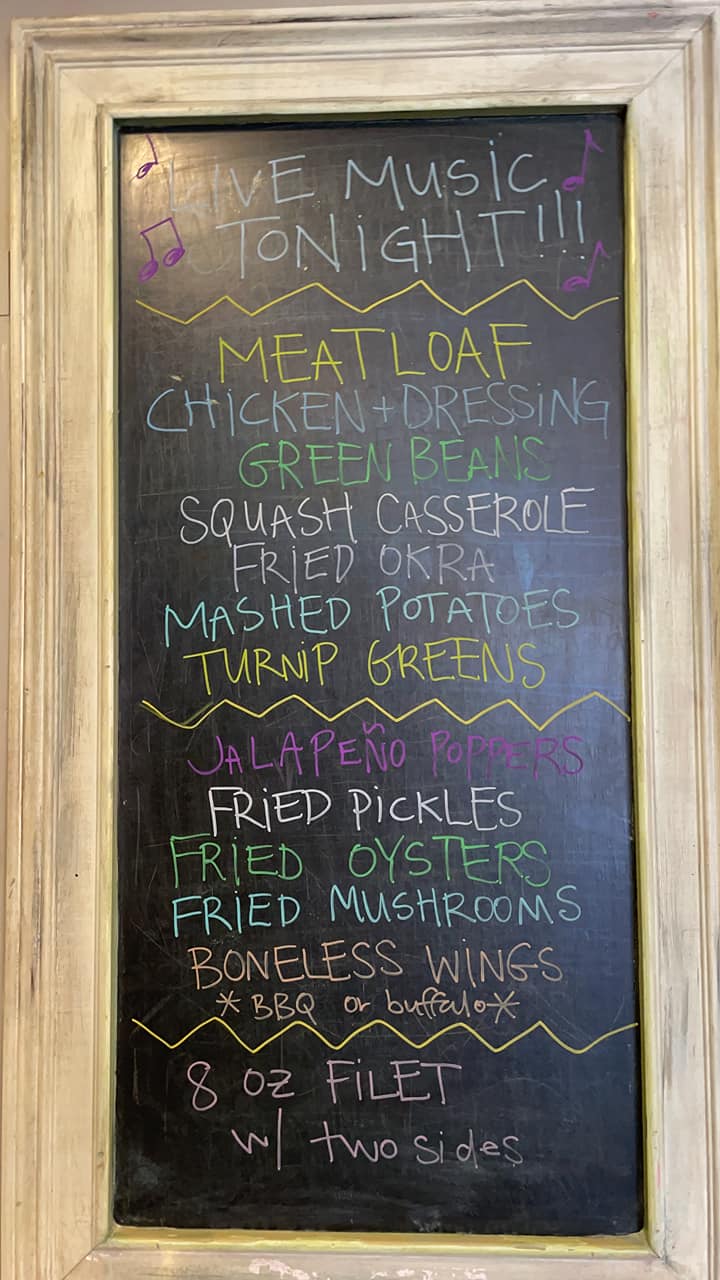 LIVE MUSIC
TONIGHT!!!
MEATLOAF
CHICKEN + DRESSING
GREEN BEANS
SQUASH CASSEROLE
FRIED OKRA
MASHED POTATOES
TURNIP GREENS
JALAPEÑO POPPERS
FRIED PICKLES
FRIED OYSTERS
FRIED MUSHROOMS
BONELESS WINGS
*BBQ or buffalo*
8 oz FILET
w/ two sides